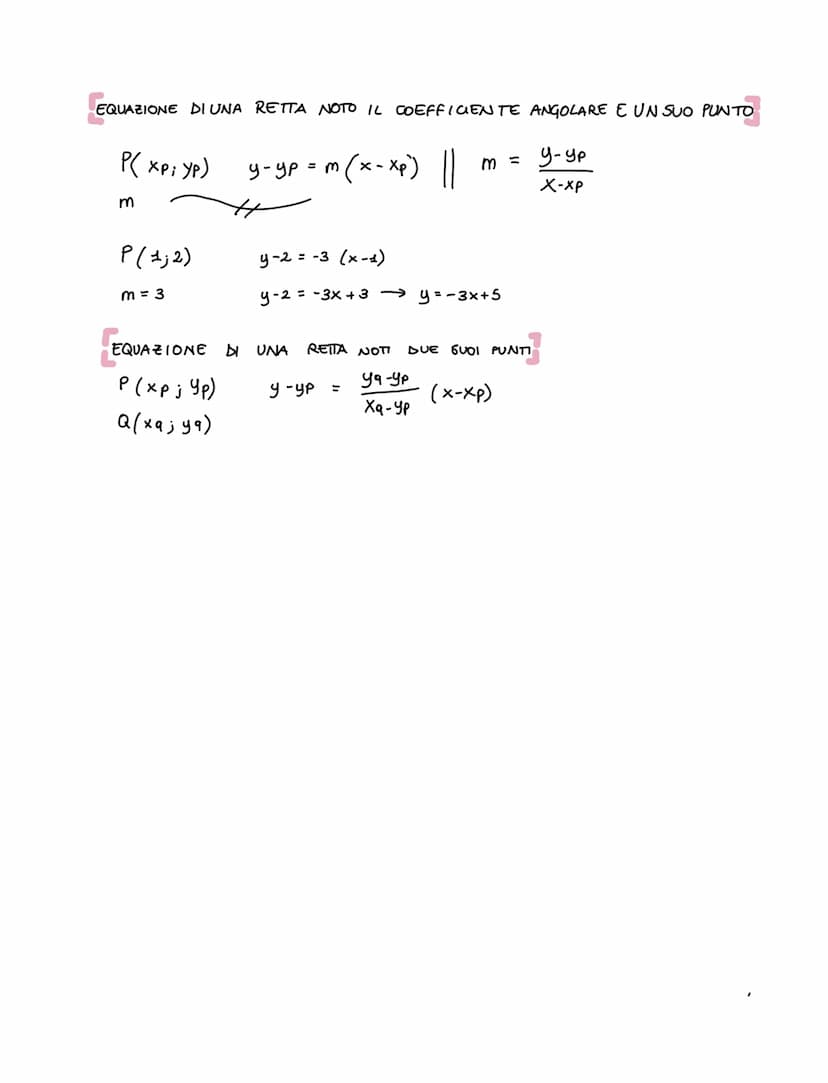 EQUAZIONE DI UNA RETTA NOTO IL COEFFICIENTE ANGOLARE E UN SUO PUNTO
P(xp; yp) y-yp = m(x-xp) || m = y-yp / x-xp
m
P(1;2) y-2 = -3 (x-1)
m = 3 y-2 = -3x+3 → y=-3x+5
EQUAZIONE DI UNA RETTA NOTI DUE SUOI PUNTI
P(xp; yp) y-yp = yq-yp / xq-yp (x-xp)
Q(xq; yq)